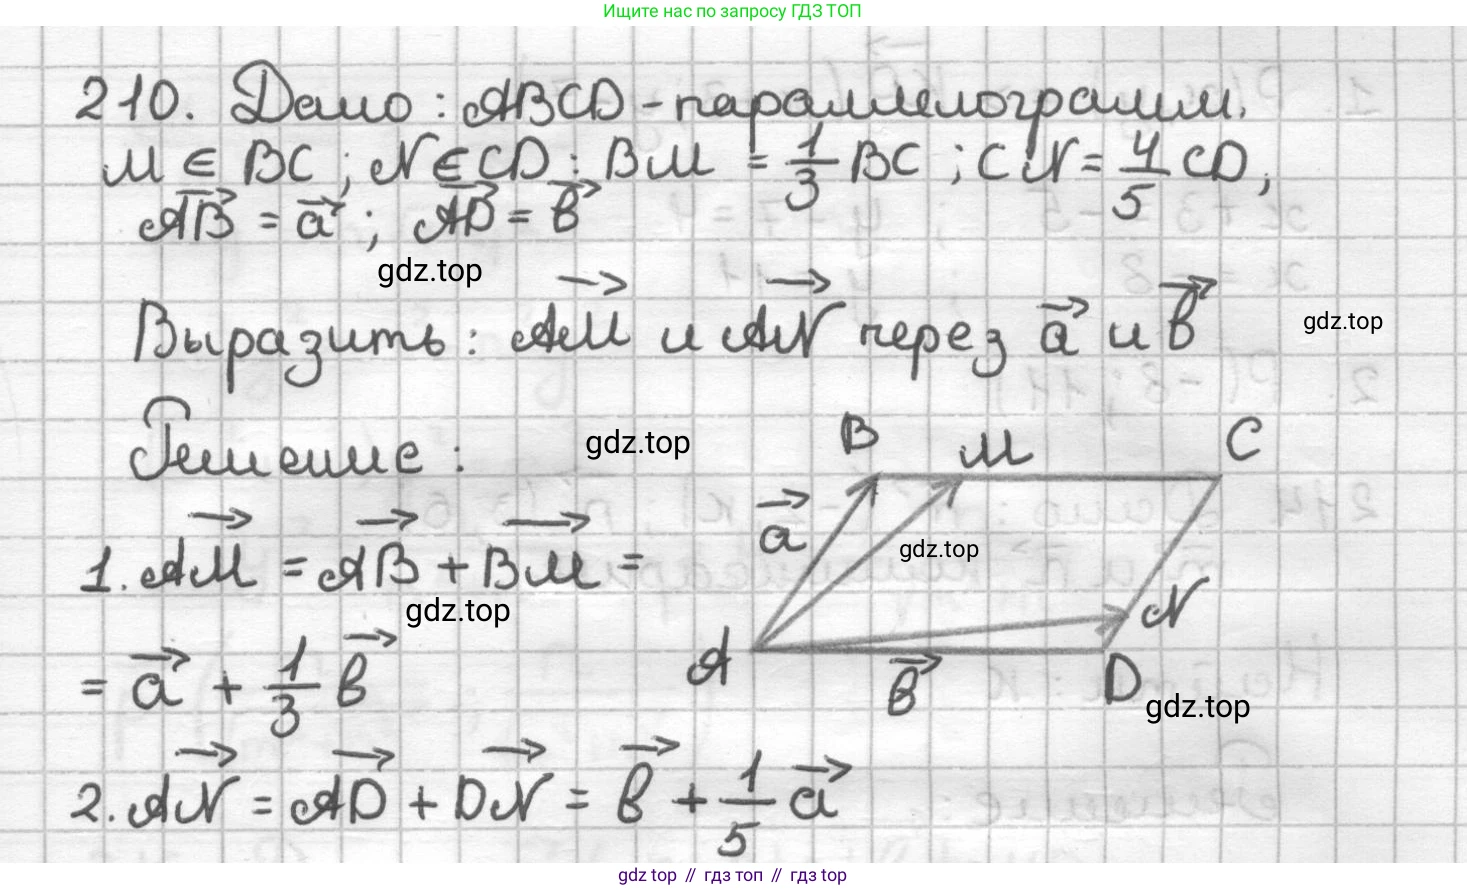 Ищите нас по запросу ГДЗ ТОП
210. Дано: ABCD - параллелограмм.
M ∈ BC; N ∈ CD : BM = 1/3 BC; CN = 4/5 CD;
AB⃗ = a⃗; AD⃗ = b⃗
gdz.top
Выразить: AM⃗ и AN⃗ через a⃗ и b⃗
gdz.top
Решение:
gdz.top
B M C
1. AM⃗ = AB⃗ + BM⃗ =
a⃗
gdz.top
gdz.top
N
= a⃗ + 1/3 b⃗
A b⃗ D
gdz.top
2. AN⃗ = AD⃗ + DN⃗ = b⃗ + 1/5 a⃗
gdz top // гдз топ // гдз top